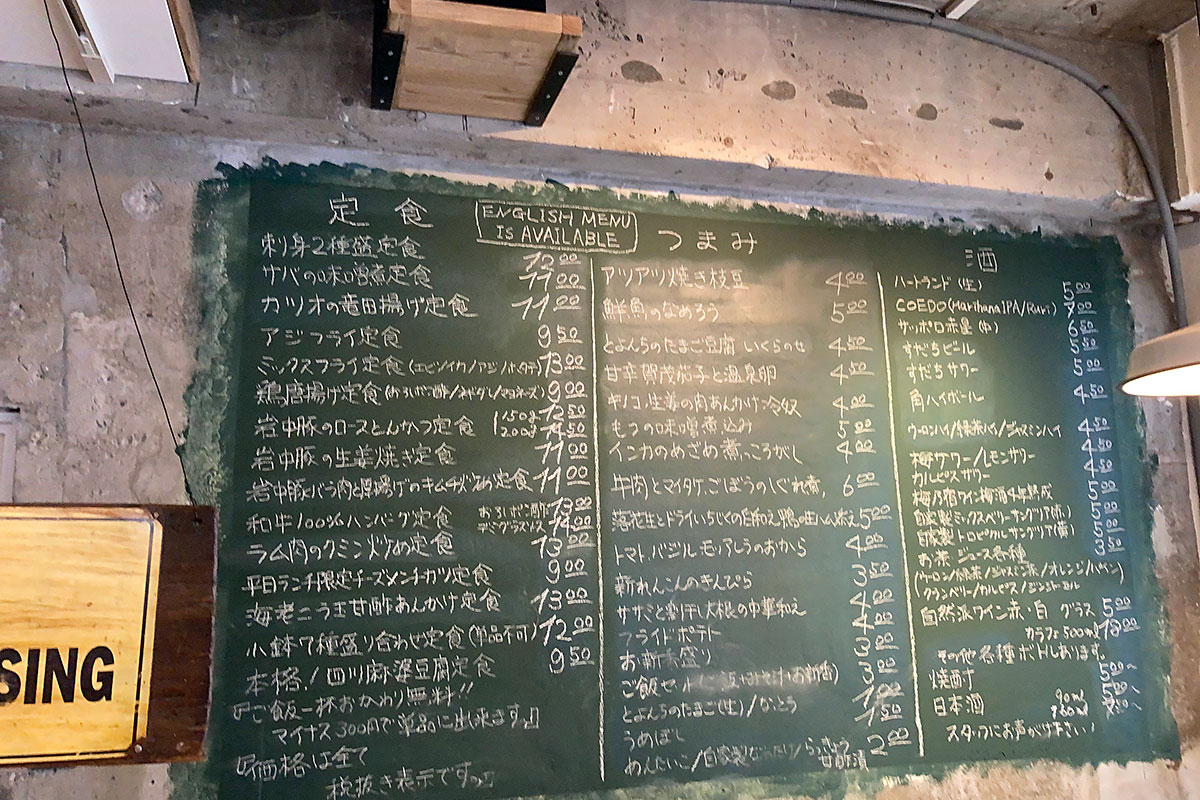 定食
ENGLISH MENU
IS AVAILABLE
刺身2種盛定食 1200
サバの味噌煮定食 1100
カツオの竜田揚げ定食 1100
アジフライ定食 950
ミックスフライ定食(エビ/イカ/アジ/ホタテ) 1300
鶏唐揚げ定食(おろしポン酢/ネギダレ/マヨネーズ) 900
岩中豚のロースとんかつ定食 150g 1250
200g 1450
岩中豚の生姜焼き定食 1100
岩中豚バラ肉と厚揚げのキムチ炒め定食 1100
和牛100%ハンバーグ定食 おろしポン酢 1300
デミグラスソース 1400
ラム肉のクミン炒め定食 1300
平日ランチ限定チーズメンチカツ定食 900
海老ニラ玉甘酢あんかけ定食 1300
小鉢7種盛り合わせ定食(単品不可) 1200
本格!四川麻婆豆腐定食 950
『ご飯一杯おかわり無料!!
マイナス300円で単品に出来ます。』
『価格は全て
税抜き表示です。』
つまみ
アツアツ焼き枝豆 400
鮮魚のなめろう 500
とよんちのたまご豆腐 いくらのせ 450
甘辛賀茂茄子と温泉卵 450
キノコと生姜の肉あんかけ冷奴 400
もつの味噌煮込み 500
インカのめざめ煮っころがし 400
牛肉とマイタケ、ごぼうのしぐれ煮 600
落花生とドライいちじくの白和え 鴨の生ハム添え 500
トマト、バジル、モッツァレラのおから 400
新れんこんのきんぴら 350
ササミと切干大根の中華和え 400
フライドポテト 400
お新香盛り 300
ご飯セット 300
とよんちのたまご(生)/なっとう 100
うめぼし 150
めんたいこ/自家製なめたけ/らっきょう甘酢漬 200
酒
ハートランド(生) 500
COEDO(Marihana IPA/Ruri) 700
サッポロ赤星(中) 650
すだちビール 550
すだちサワー 500
角ハイボール 450
ウーロンハイ/緑茶ハイ/ジャスミンハイ 450
梅サワー/レモンサワー 450
カルピスサワー 450
梅乃宿ワイン梅酒4年熟成 500
自家製ミックスベリーサングリア(赤) 500
自家製トロピカルサングリア(黄) 500
お茶 ジュース各種 350
(ウーロン/緑茶/ジャスミン茶/オレンジ/パイン)
(クランベリー/カルピス/ジンジャーエール
自然派ワイン赤・白 グラス 500
カラフェ500ml 1800
その他各種ボトルあります。
焼酎 500~
日本酒 90ml 500~
180ml
スタッフにお声がけ下さい!
SING